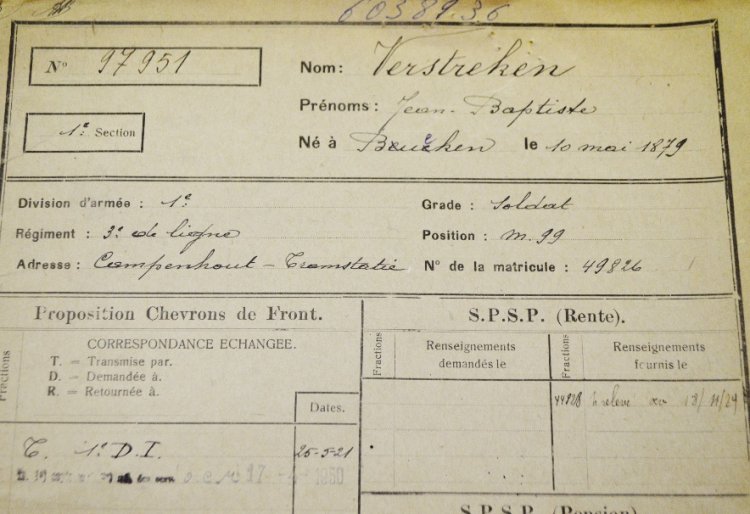 60389.36
N° 97951
Nom: Verstreken
Prénoms: Jean-Baptiste
1e Section
Né à Beucken le 10 mai 1879
Division d'armée : 1e
Grade : Soldat
Régiment : 3e de ligne
Position : m. 99
Adresse : Campenhout - Tramstatie
N° de la matricule : 49826
Proposition Chevrons de Front.
S.P.S.P. (Rente).
Fractions
CORRESPONDANCE ECHANGÉE.
T. = Transmise par.
D. = Demandée à.
R. = Retournée à.
Dates.
Fractions
Renseignements
demandés le
Fractions
Renseignements
fournis le
relevé 13/11/29
T. 1e D.I. 25-5-21
1950
S.P.S.P. (Pension)